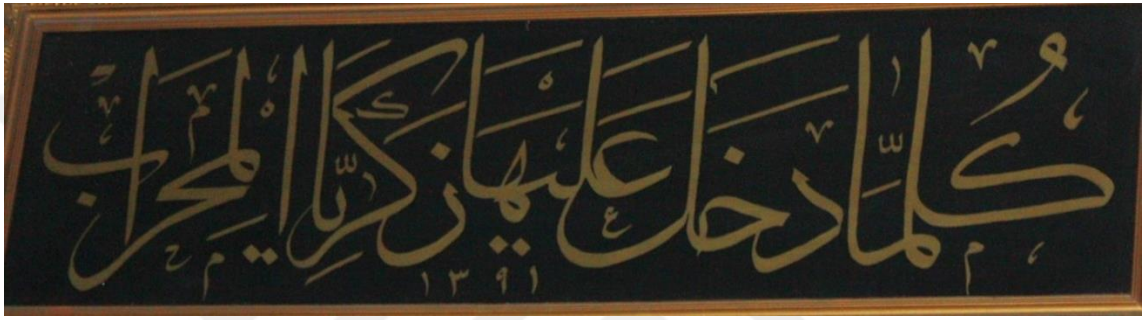 كُلَّمَا دَخَلَ عَلَيْهَا زَكَرِيَّا الْمِحْرَابَ
١٣٩١